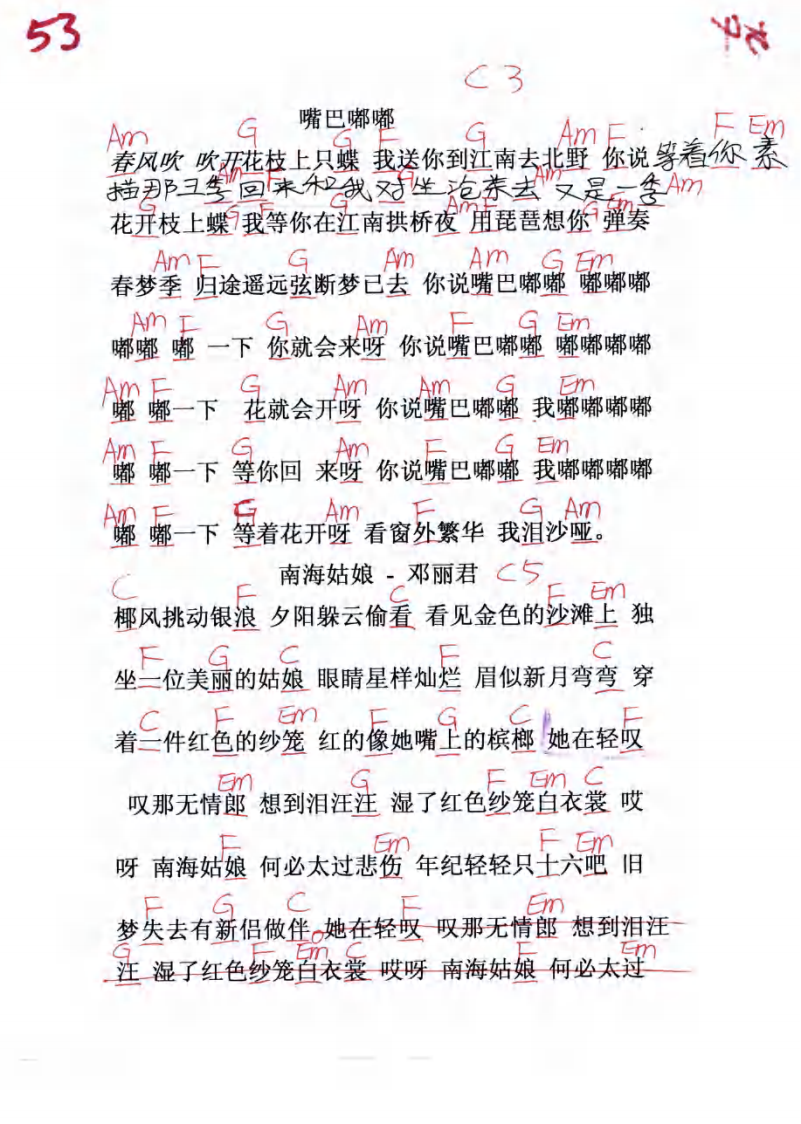 53
C 3
嘴巴嘟嘟
Am G G F G Am F F Em
春风吹 吹开花枝上只蝶 我送你到江南去北野 你说等着你
Am F Am Am
那 季回来和我对坐沧 去 又是一季
G G F G Am F G Em
花开枝上蝶 我等你在江南拱桥夜 用琵琶想你 弹奏
Am F G Am Am G Em
春梦季 归途遥远弦断梦已去 你说嘴巴嘟嘟 嘟嘟嘟
Am F G Am F G Em
嘟嘟 嘟 一下 你就会来呀 你说嘴巴嘟嘟 嘟嘟嘟嘟
Am F G Am Am G Em
嘟 嘟一下 花就会开呀 你说嘴巴嘟嘟 我嘟嘟嘟嘟
Am F G Am F G Em
嘟 嘟一下 等你回 来呀 你说嘴巴嘟嘟 我嘟嘟嘟嘟
Am F G Am F G Am
嘟 嘟一下 等着花开呀 看窗外繁华 我泪沙哑。
南海姑娘 - 邓丽君 C5
C F C F Em
椰风挑动银浪 夕阳躲云偷看 看见金色的沙滩上 独
F G C F C
坐一位美丽的姑娘 眼睛星样灿烂 眉似新月弯弯 穿
C F Em F G C F
着一件红色的纱笼 红的像她嘴上的槟榔 她在轻叹
Em G F Em C
叹那无情郎 想到泪汪汪 湿了红色纱笼白衣裳 哎
F Em F Em
呀 南海姑娘 何必太过悲伤 年纪轻轻只十六吧 旧
F G C F Em
梦失去有新侣做伴。她在轻叹 叹那无情郎 想到泪汪
G F Em C F Em
汪 湿了红色纱笼白衣裳 哎呀 南海姑娘 何必太过